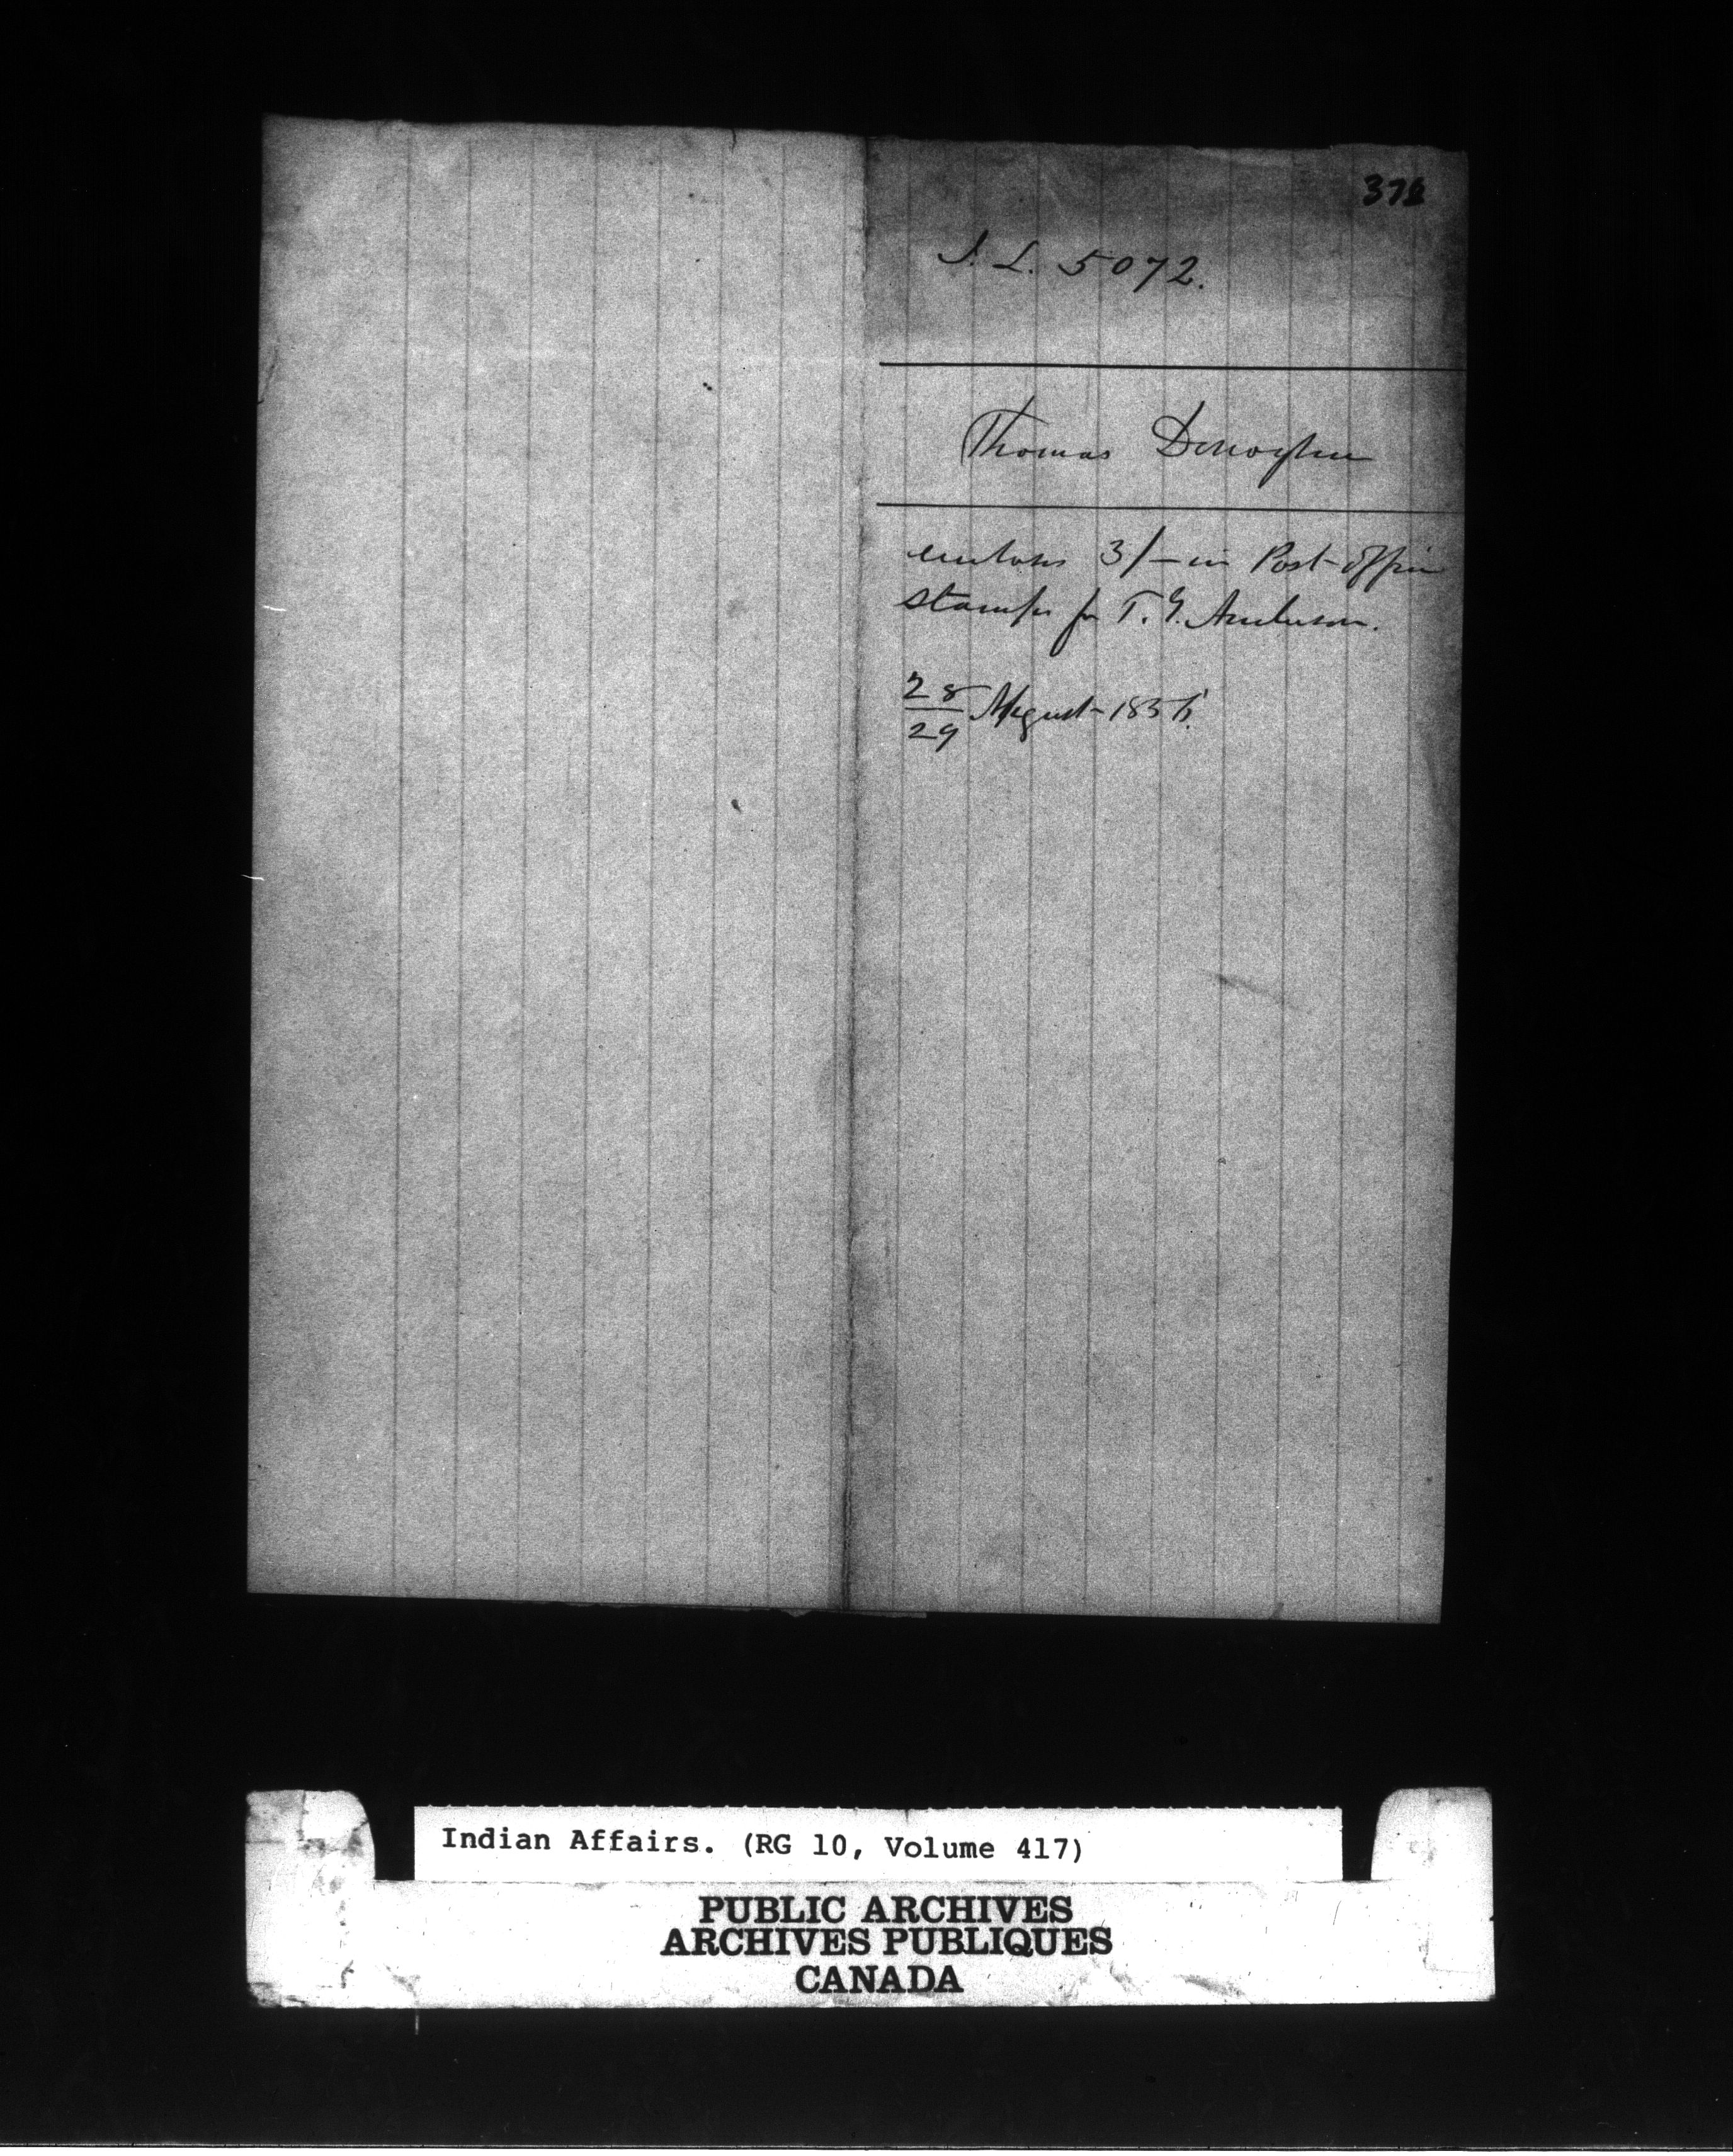 376
I. L. 5072.
Thomas Donoghue
encloses 3/- in Post-Office
stamps for T. G. Anderson.
28
29 August 1856.
Indian Affairs. (RG 10, Volume 417)
PUBLIC ARCHIVES
ARCHIVES PUBLIQUES
CANADA